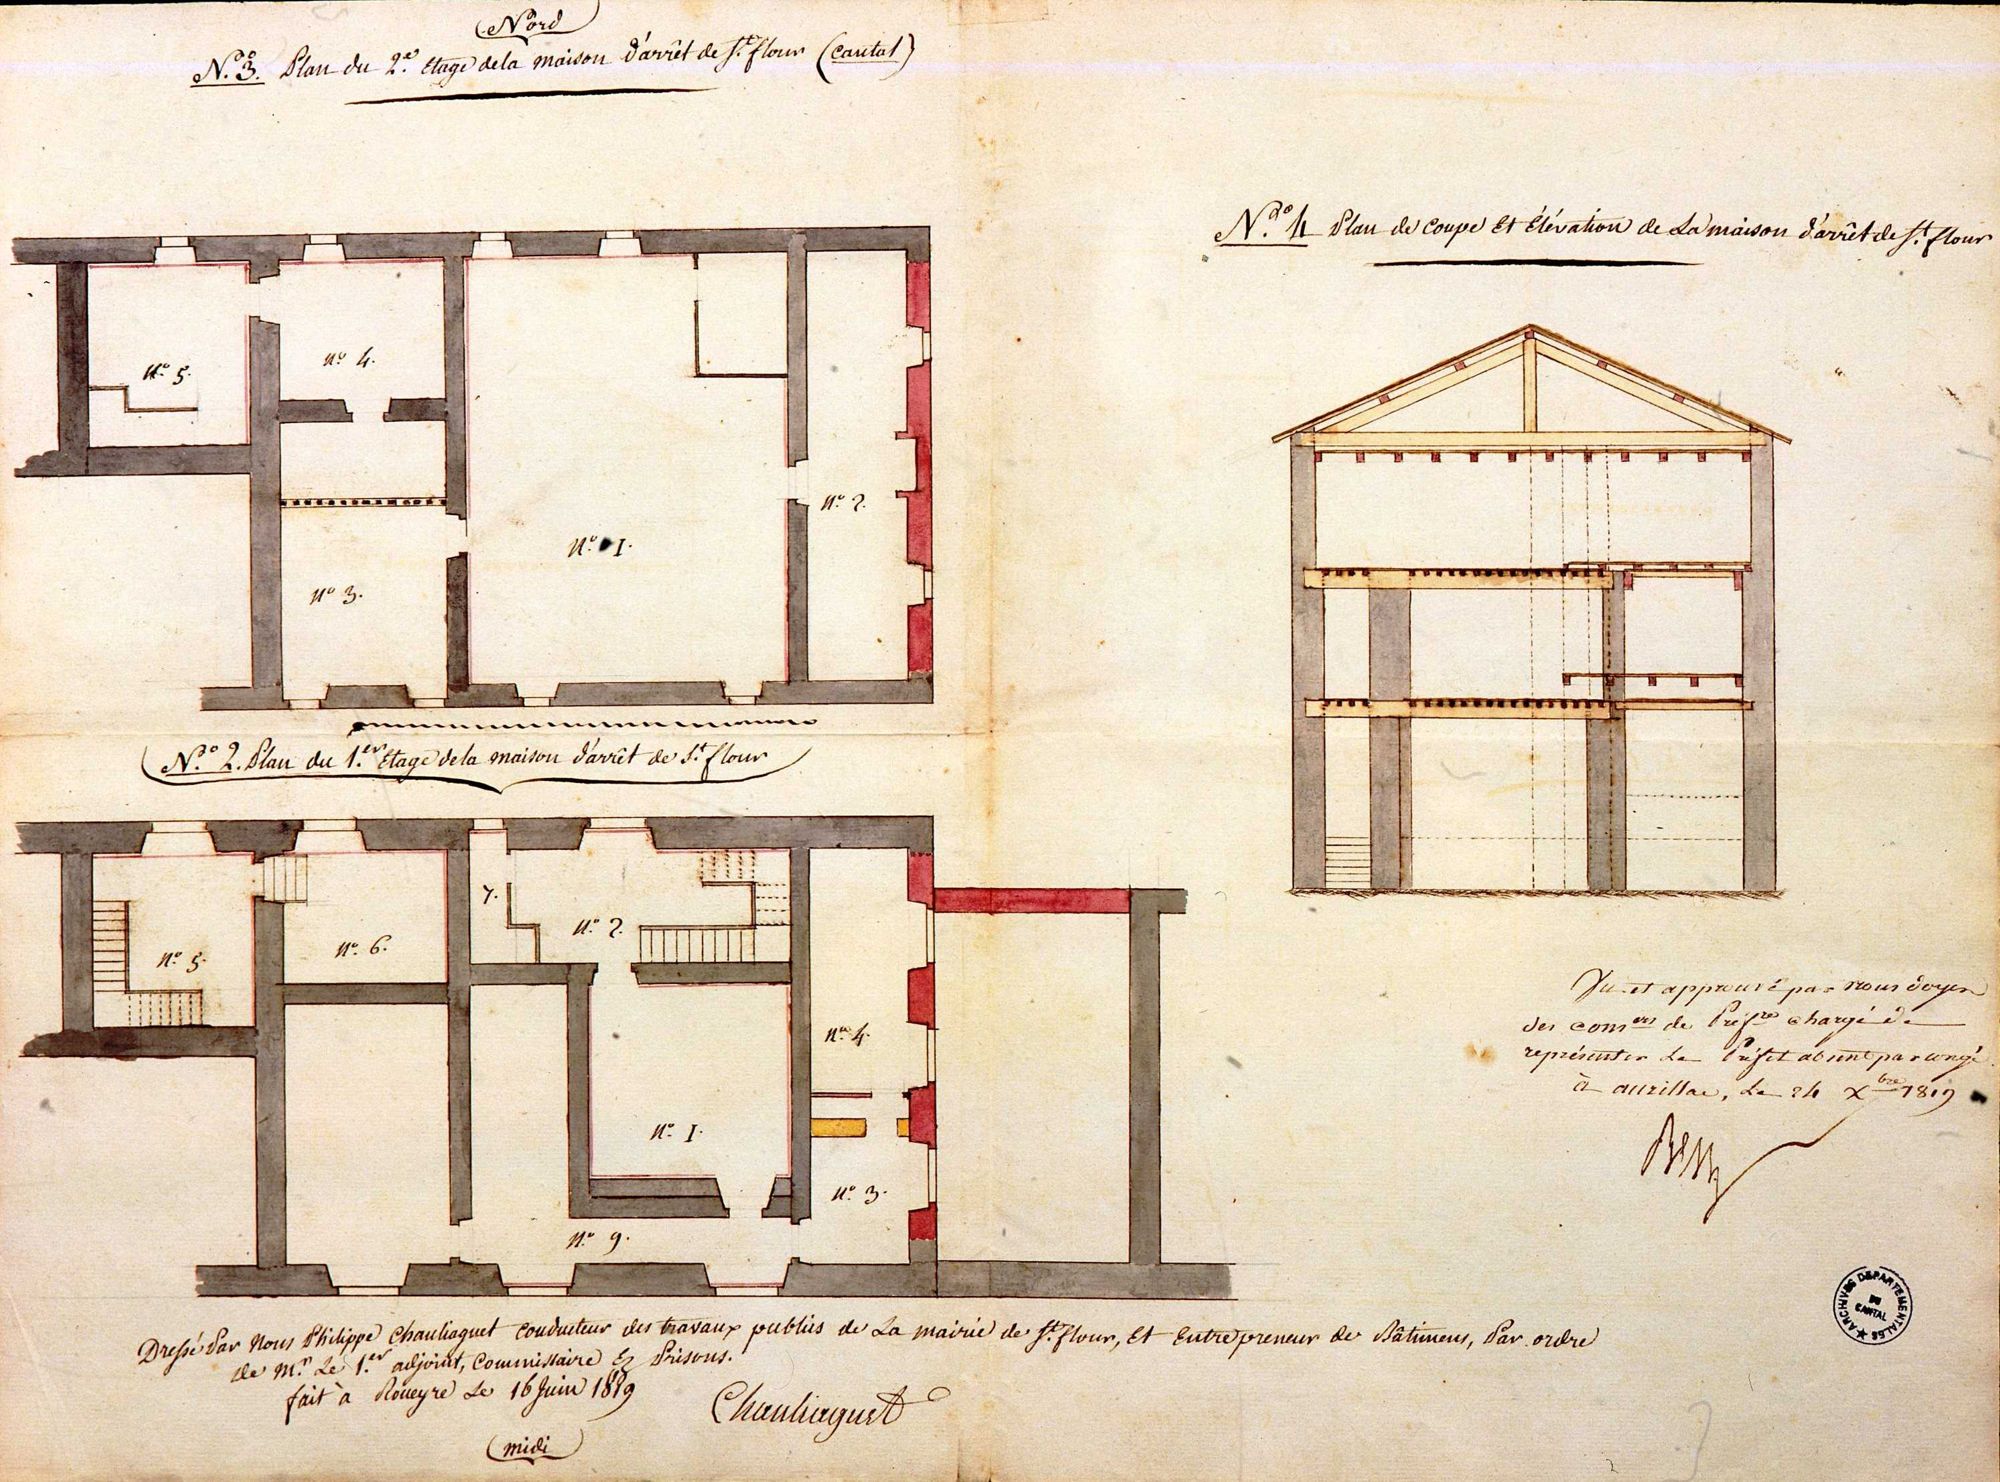 Nord
N.º 3. Plan du 2.e Etage de la maison d'arrêt de S.t flour (Cantal)
N.º 5.
N.º 4.
N.º 2.
N.º 1.
N.º 3.
N.º 2. Plan du 1.er Etage de la maison d'arrêt de S.t flour
7.
N.º 2.
N.º 5.
N.º 6.
N.º 4.
N.º 1.
N.º 3.
N.º 9.
Dressé Par Nous Philippe Chauliaguet Conducteur des travaux publics de La mairie de S.t flour, Et Entrepreneur de Bâtimens, Par ordre
de M.r Le 1.er adjoint, Commissaire Ez Prisons.
fait à Roueyre Le 16 Juin 1819
Chauliaguet
(midi)
N.º 4 Plan de Coupe Et Élévation de La maison d'arrêt de S.t flour
Vu et approuvé par nous doyen
des Cons.ers de Préf.re chargé de
représenter Le Préfet absent par congé
à aurillac, Le 24 Xbre 1819
ARCHIVES DEPARTEMENTALES
DU
CANTAL